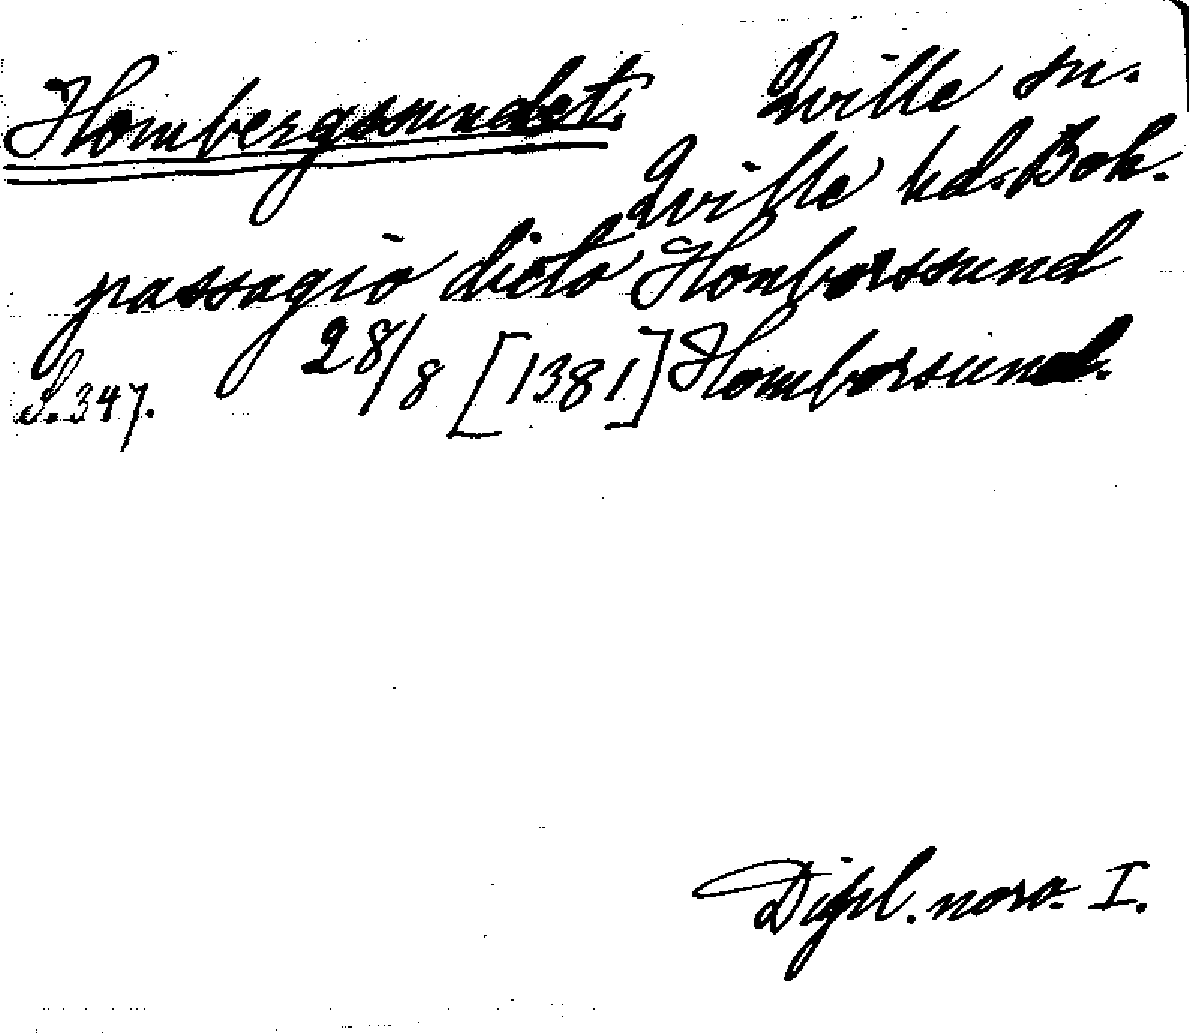 Hombergssundet. Qville sn.
Qville hd. Boh.
passagio dicto Honborssund
S. 347. 28/8 [1381] Homborsund.
Dipl. norv. I.